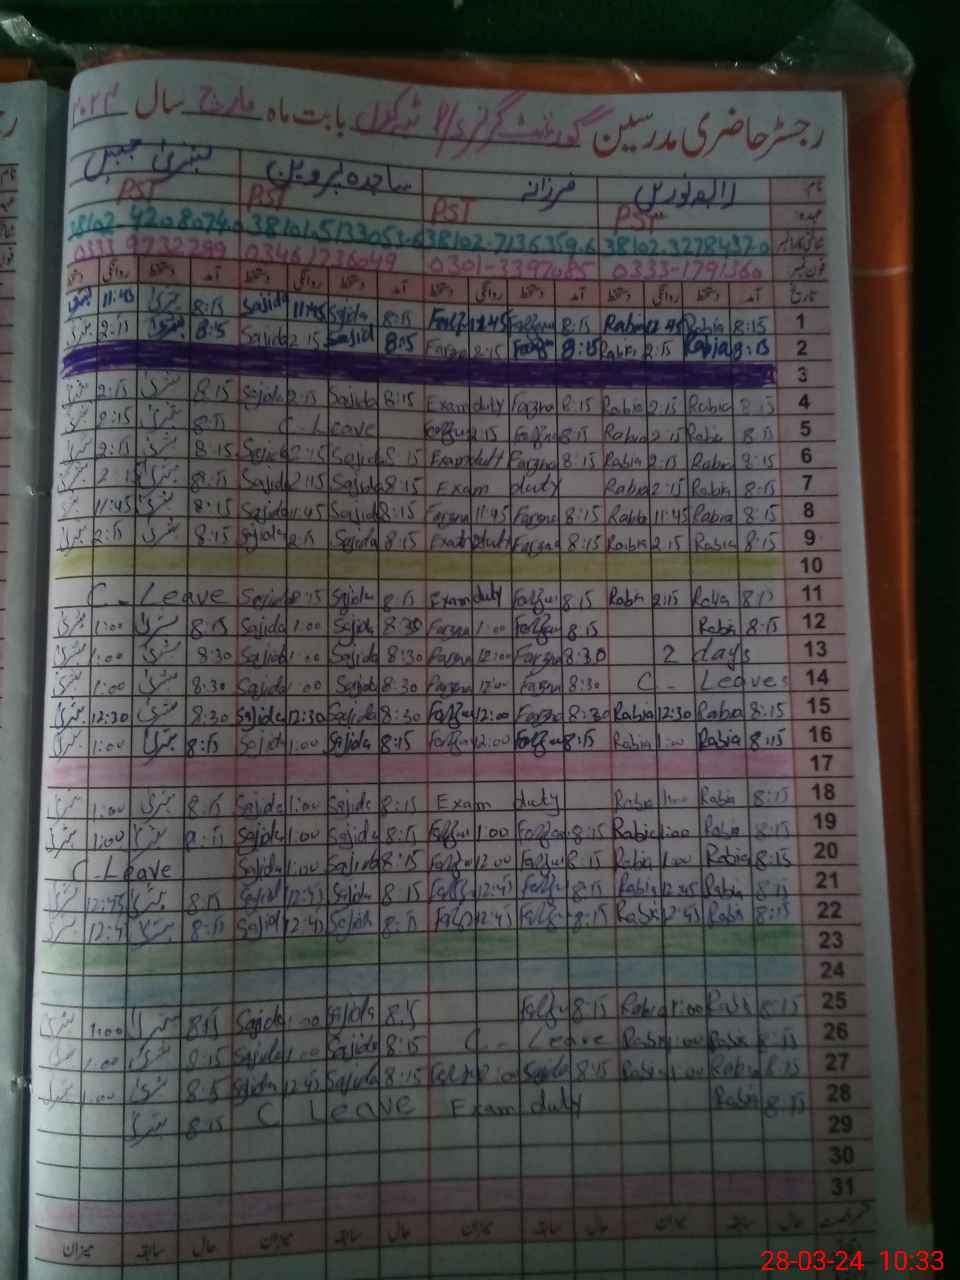 رجسٹر حاضری مدرسین گورنمنٹ گرلز بابت ماہ مارچ سال ۲۰۲۴
نام رابعہ نورین فرزانہ ساجدہ پروین بشریٰ جبیں
عہدہ PST PST PST PST
38102-3278437-0 38102-7136359-6 38101-5133053-6 38102-4208074-0
فون نمبر 0333-1791360 0301-3397085 03461736049 0333 9732299
تاریخ آمد دستخط روانگی دستخط آمد دستخط روانگی دستخط آمد دستخط روانگی دستخط آمد دستخط روانگی دستخط
1 8:15 Rabia 11:45 Rabia 8:15 Farzana 11:45 8:15 Sajida 11:45 Sajida 8:15 بشریٰ 11:45 بشریٰ
2 8:15 Rabia 2:15 Rabia 8:15 Farzana 2:15 Farzana 8:15 Sajida 2:15 Sajida 8:15 بشریٰ 2:15 بشریٰ
3
4 8:15 Rabia 2:15 Rabia 8:15 Farzna Exam duty 8:15 Sajida 2:15 Sajida 8:15 بشریٰ 2:15 بشریٰ
5 8:15 Rabia 2:15 Rabia 8:15 2:15 C-Leave 8:15 بشریٰ 2:15 بشریٰ
6 8:15 Rabia 2:15 Rabia 8:15 Farzna Exam duty 8:15 Sajida 2:15 Sajida 8:15 بشریٰ 2:15 بشریٰ
7 8:15 Rabia 2:15 Rabia Exam duty 8:15 Sajida 2:15 Sajida 8:15 بشریٰ 2:15 بشریٰ
8 8:15 Rabia 11:45 Rabia 8:15 Farzna 11:45 Farzna 8:15 Sajida 11:45 Sajida 8:15 بشریٰ 11:45 بشریٰ
9 8:15 Rabia 2:15 Rabia 8:15 Farzna Exam duty 8:15 Sajida 2:15 Sajida 8:15 بشریٰ 2:15 بشریٰ
10
11 8:15 Rabia 2:15 Rabia 8:15 Exam duty 8:15 Sajida 2:15 Sajida C-Leave
12 8:15 Rabia 8:15 1:00 Farzna 8:30 Sajida 1:00 Sajida 8:15 بشریٰ 1:00 بشریٰ
13 2 days 8:30 Farzna 12:00 Farzna 8:30 Sajida 1:00 Sajida 8:30 بشریٰ 1:00 بشریٰ
14 C-Leaves 8:30 Farzna 12:00 Farzna 8:30 Sajida 1:00 Sajida 8:30 بشریٰ 1:00 بشریٰ
15 8:15 Rabia 12:30 Rabia 8:30 Farzna 12:00 8:30 Sajida 12:30 Sajida 8:30 بشریٰ 12:30 بشریٰ
16 8:15 Rabia 1:00 Rabia 8:15 12:00 8:15 Sajida 1:00 Sajida 8:15 بشریٰ 1:00 بشریٰ
17
18 8:15 Rabia 1:00 Rabia Exam duty 8:15 Sajida 1:00 Sajida 8:15 بشریٰ 1:00 بشریٰ
19 8:15 Rabia 1:00 Rabia 8:15 1:00 8:15 Sajida 1:00 Sajida 8:15 بشریٰ 1:00 بشریٰ
20 8:15 Rabia 1:00 Rabia 8:15 12:00 8:15 Sajida 1:00 Sajida C-Leave
21 8:15 Rabia 12:45 Rabia 8:15 12:45 8:15 Sajida 12:45 Sajida 8:15 بشریٰ 12:45 بشریٰ
22 8:15 Rabia 12:45 Rabia 8:15 12:45 8:15 Sajida 12:45 Sajida 8:15 بشریٰ 12:45 بشریٰ
23
24
25 8:15 Rabia 1:00 Rabia 8:15 8:15 Sajida 1:00 Sajida 8:15 بشریٰ 1:00 بشریٰ
26 8:15 Rabia 1:00 Rabia C-Leave 8:15 Sajida 1:00 Sajida 8:15 بشریٰ 1:00 بشریٰ
27 8:15 Rabia 1:00 Rabia 8:15 8:15 Sajida 12:45 Sajida 8:15 بشریٰ 1:00 بشریٰ
28 8:15 Rabia Exam duty C Leave 8:15 بشریٰ
29
30
31
حال سابقہ میزان حال سابقہ میزان حال سابقہ میزان حال سابقہ میزان
28-03-24 10:33